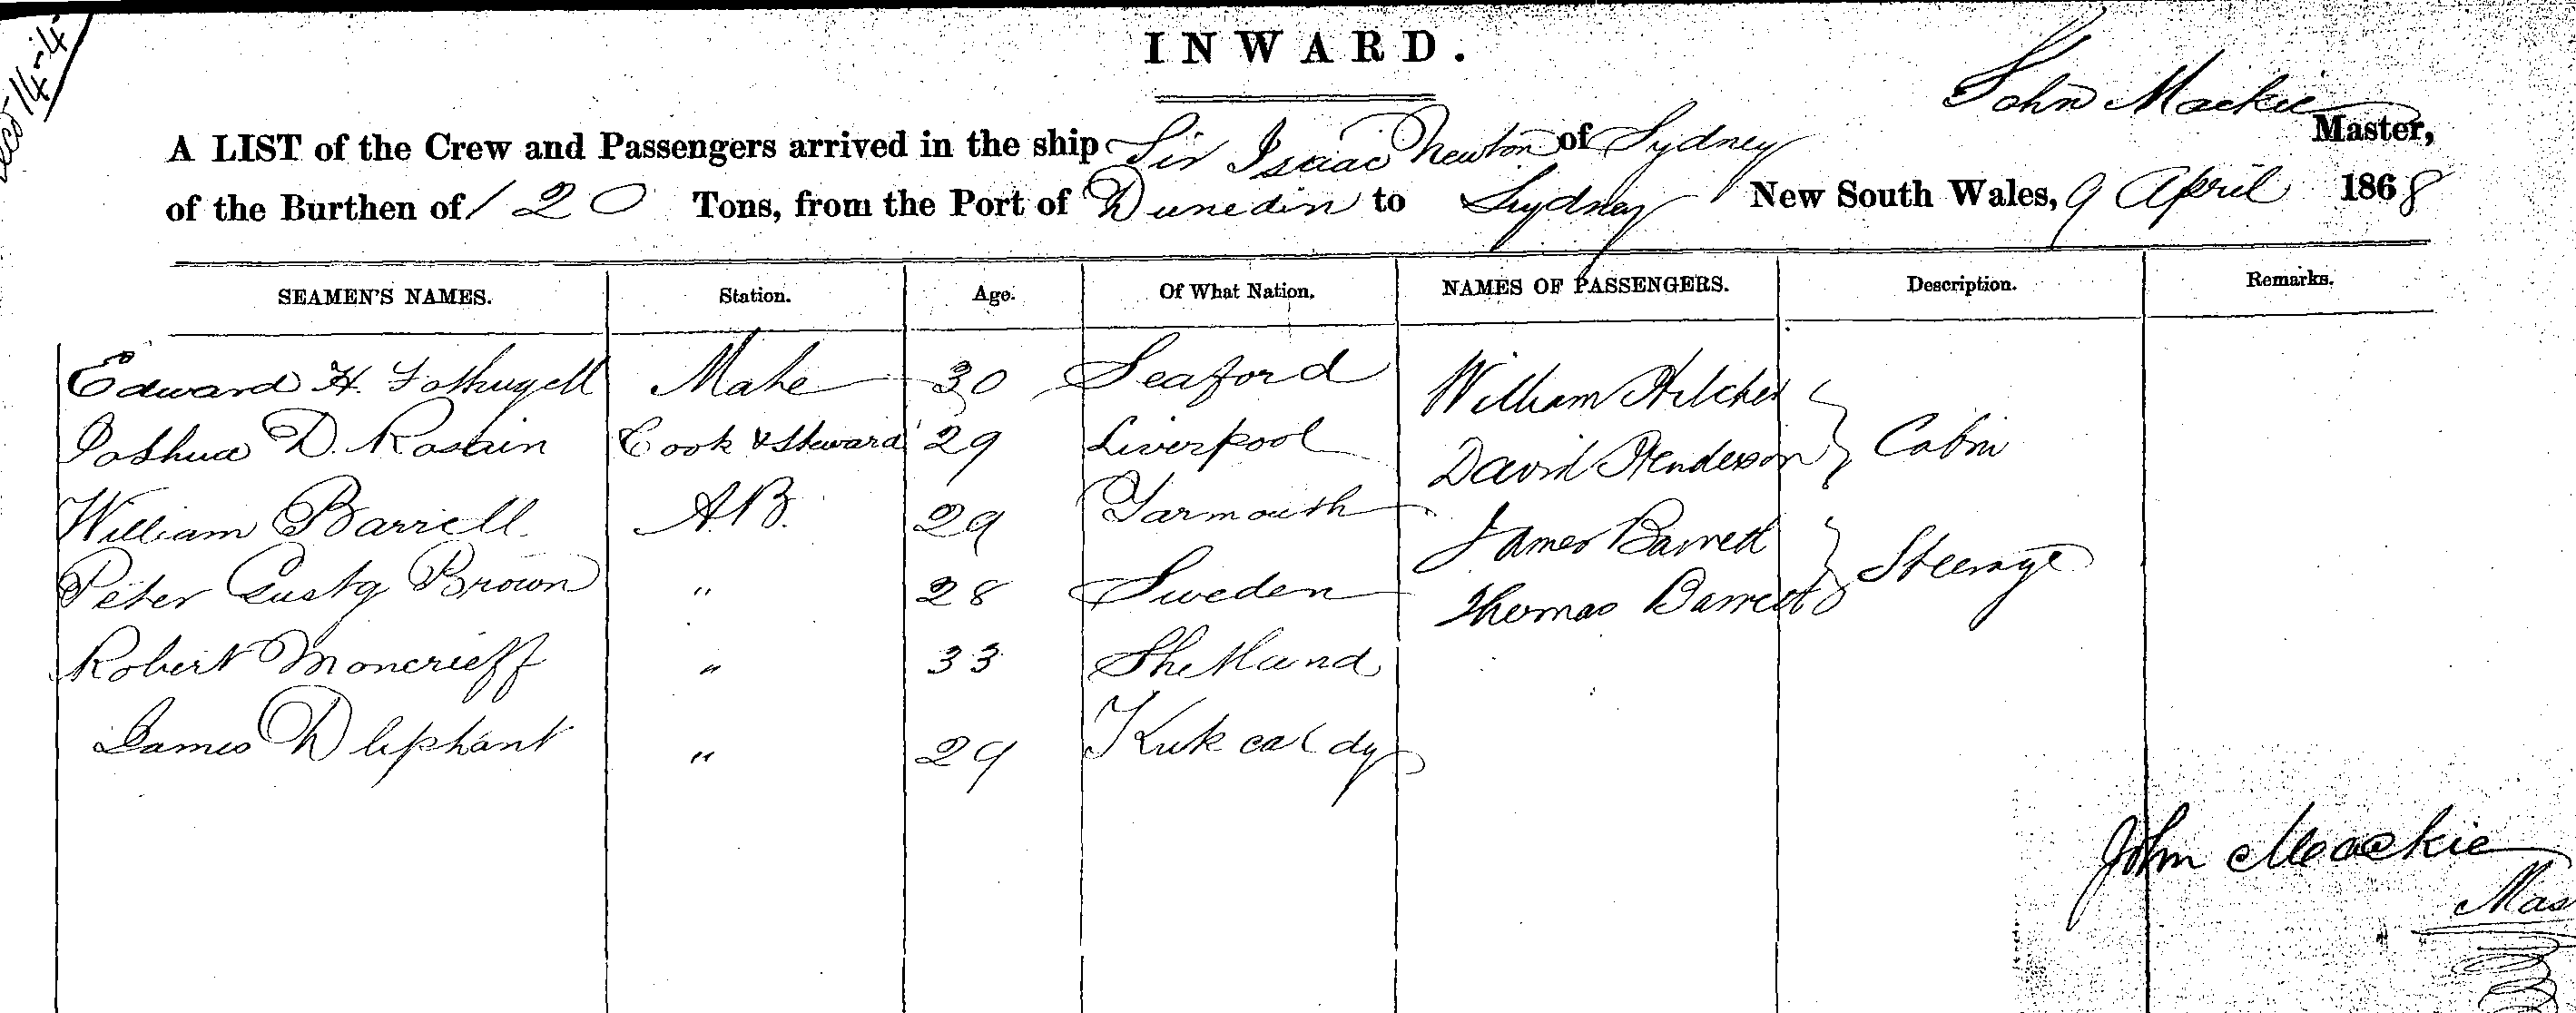 INWARD.
John Mackie
A LIST of the Crew and Passengers arrived in the ship Sir Isaac Newton of Sydney Master,
of the Burthen of 120 Tons, from the Port of Dunedin to Sydney New South Wales, 9 April 1868
SEAMEN'S NAMES. Station. Age. Of What Nation. NAMES OF PASSENGERS. Description. Remarks.
Edward H. Mate 30 Seaford William
Joshua D. Cook & Steward 29 Liverpool David Henderson Cabin
William Barrell A.B. 29 Yarmouth James Barrett
Peter Brown " 28 Sweden Thomas Barrett Steerage
Robert Moncrieff " 33 Shetland
James " 29 Kirkcaldy
John Mackie
Mas